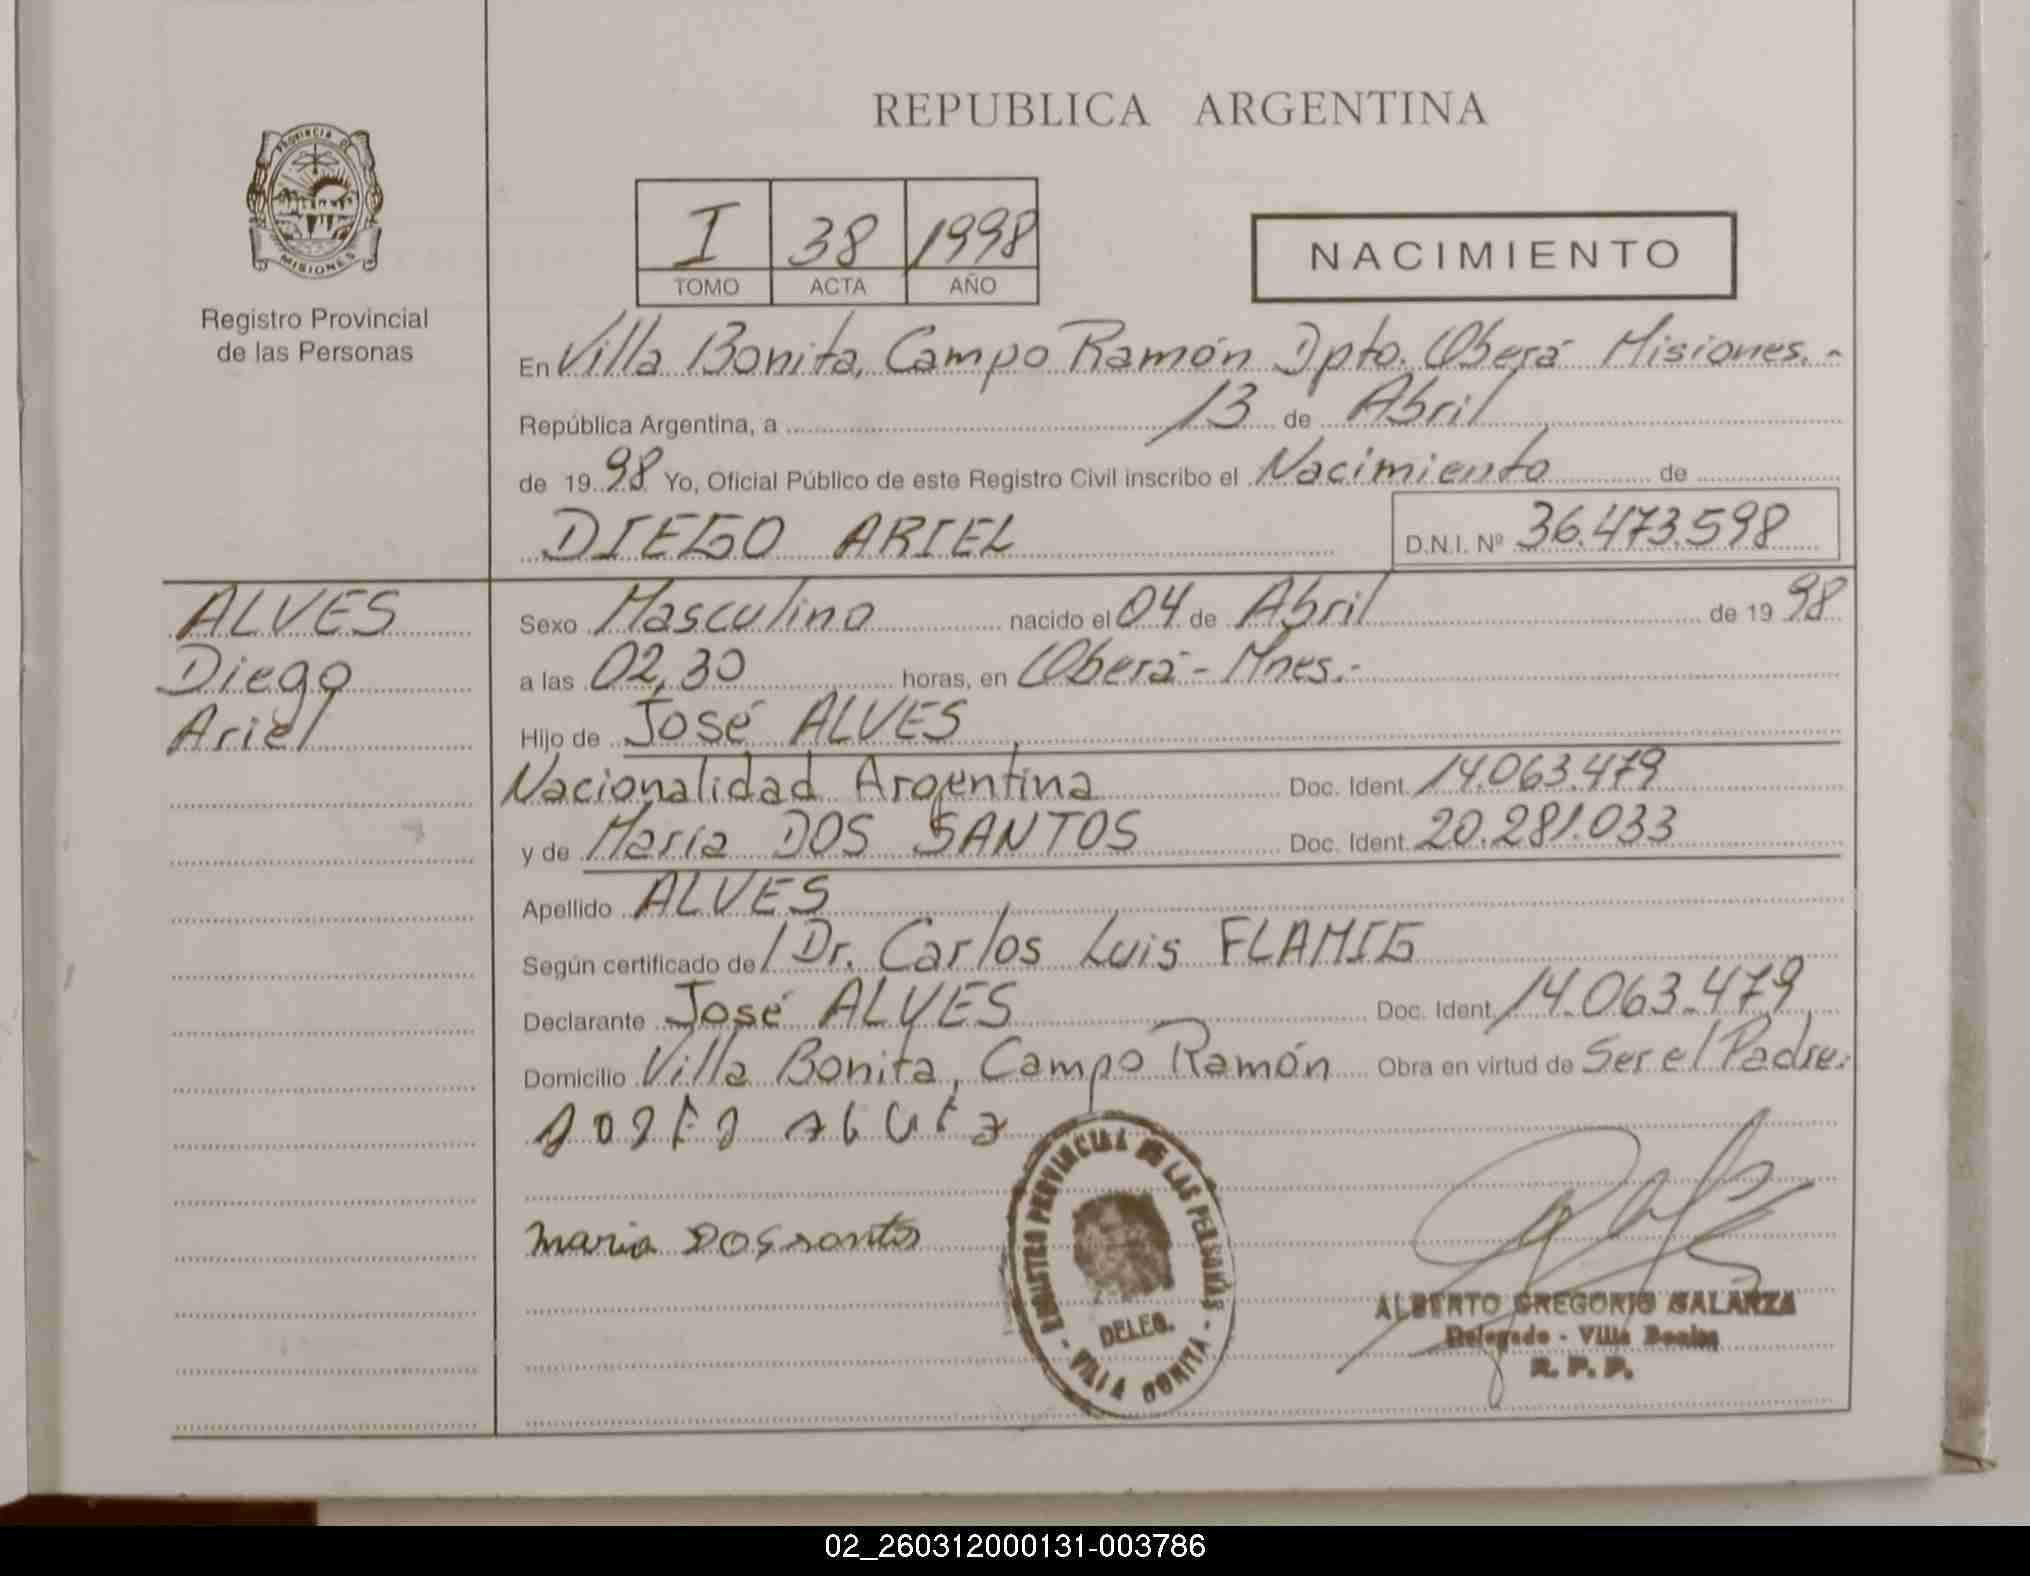 REPUBLICA ARGENTINA
PROVINCIA DE
MISIONES
Registro Provincial
de las Personas
I 38 1998
TOMO ACTA AÑO
NACIMIENTO
En Villa Bonita, Campo Ramón Dpto. Oberá Misiones.-
República Argentina, a 13 de Abril
de 1998 Yo, Oficial Público de este Registro Civil inscribo el Nacimiento de
DIEGO ARIEL D.N.I. Nº 36.473.598
ALVES
Diego
Ariel
Sexo Masculino nacido el 04 de Abril de 1998
a las 02,30 horas, en Oberá - Mnes.-
Hijo de José ALVES
Nacionalidad Argentina Doc. Ident. 14.063.479
y de María DOS SANTOS Doc. Ident. 20.281.033
Apellido ALVES
Según certificado de/ Dr. Carlos Luis FLAMIG
Declarante José ALVES Doc. Ident. 14.063.479
Domicilio Villa Bonita, Campo Ramón Obra en virtud de Ser el Padre.-
maria DOS santos
REGISTRO PROVINCIAL DE LAS PERSONAS -
DELEG.
- VILLA BONITA
ALBERTO GREGORIO GALARZA
Delegado - Villa Bonita
R. P. P.
02_260312000131-003786